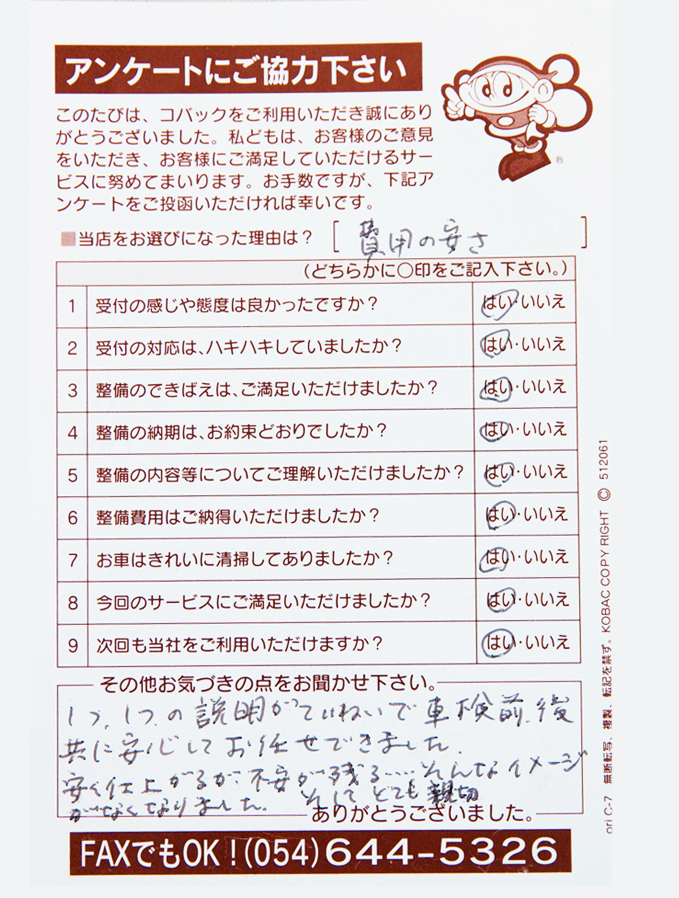 アンケートにご協力下さい
このたびは、コバックをご利用いただき誠にあり
がとうございました。私どもは、お客様のご意見
をいただき、お客様にご満足していただけるサー
ビスに努めてまいります。お手数ですが、下記ア
ンケートをご投函いただければ幸いです。
■当店をお選びになった理由は？ [ 費用の安さ ]
（どちらかに○印をご記入下さい。）
1 受付の感じや態度は良かったですか？ はい・いいえ
2 受付の対応は、ハキハキしていましたか？ はい・いいえ
3 整備のできばえは、ご満足いただけましたか？ はい・いいえ
4 整備の納期は、お約束どおりでしたか？ はい・いいえ
5 整備の内容等についてご理解いただけましたか？ はい・いいえ
6 整備費用はご納得いただけましたか？ はい・いいえ
7 お車はきれいに清掃してありましたか？ はい・いいえ
8 今回のサービスにご満足いただけましたか？ はい・いいえ
9 次回も当社をご利用いただけますか？ はい・いいえ
その他お気づきの点をお聞かせ下さい。
1つ、1つの説明がていねいで車検前、後
共に安心してお任せできました。
安く仕上がるが、不安が残る…。そんなイメージ
がなくなりました。 そしてとても親切
ありがとうございました。
FAXでもOK！(054)644-5326
ori C-7 無断転写、複製、転記を禁ず。KOBAC COPY RIGHT © 512061